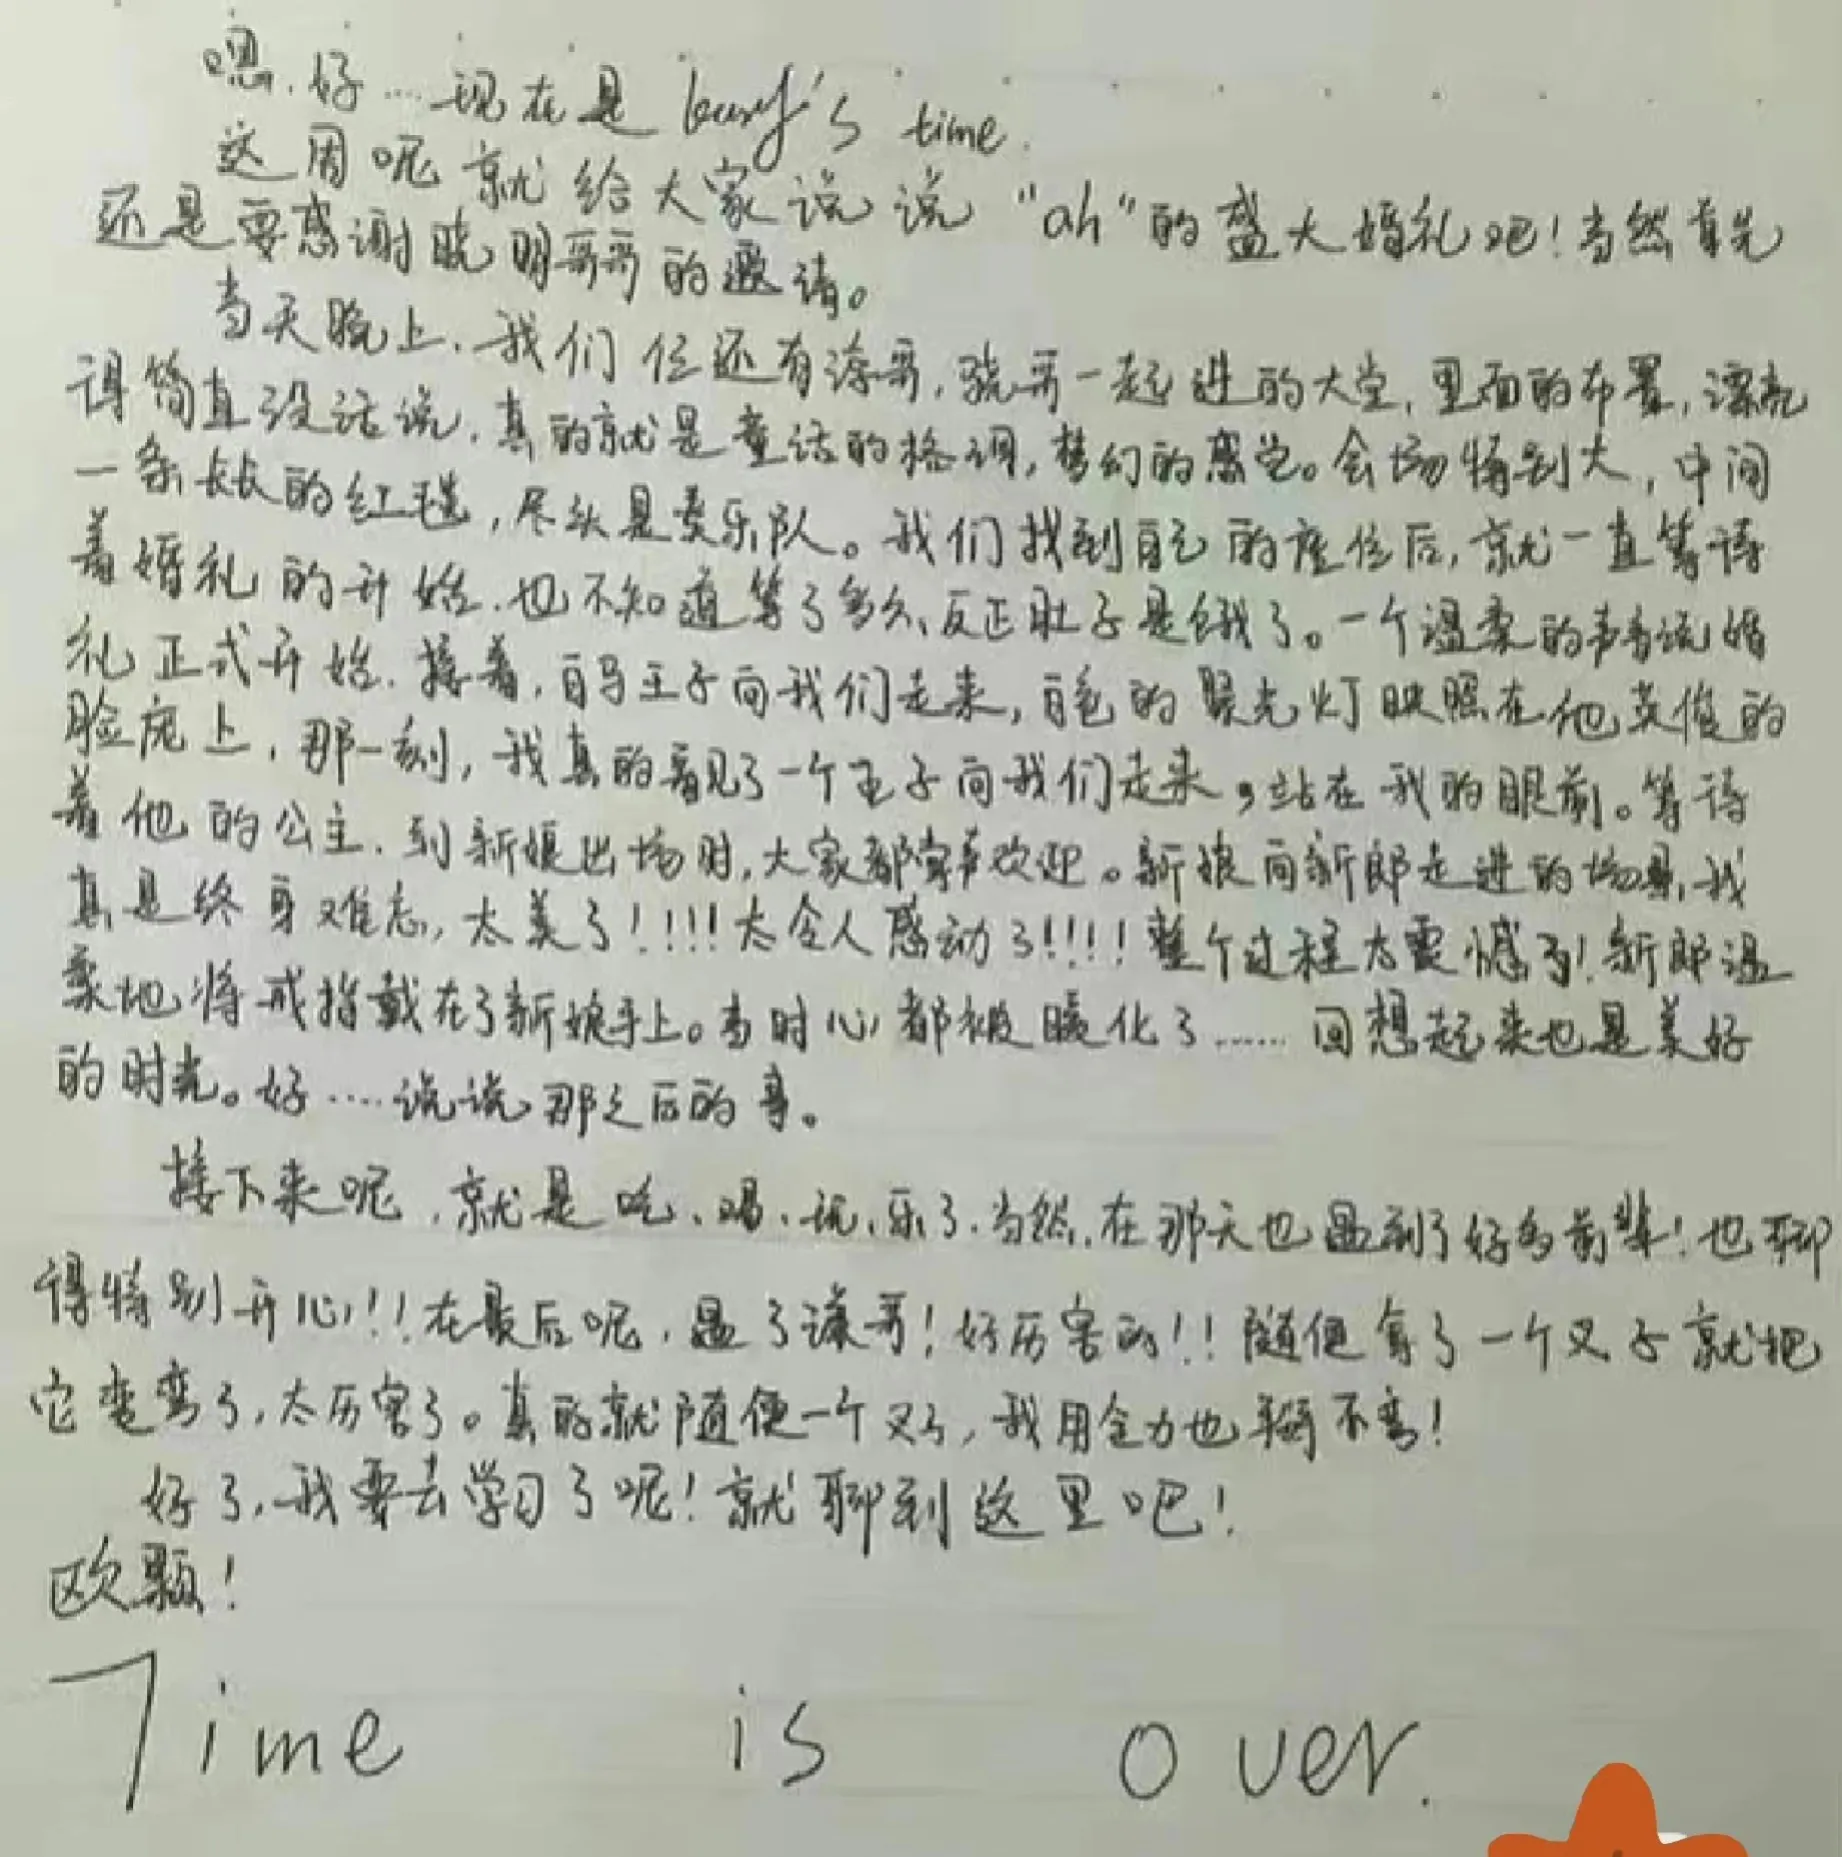 嗯.好……现在是 busy's time.
这周呢就给大家说说“ah”的盛大婚礼吧！当然首先
还是要感谢晓明哥哥的邀请。
当天晚上.我们位还有涛哥,骁哥一起进的大堂,里面的布置,漂亮
得简直没话说.真的就是童话的格调,梦幻的感觉。会场特别大,中间
一条长长的红毯,尽头是奏乐队。我们找到自己的座位后,就一直等待
着婚礼的开始.也不知道等了多久、反正肚子是饿了。一个温柔的声音说婚
礼正式开始.接着,白马王子向我们走来,白色的聚光灯映照在他英俊的
脸庞上,那一刻,我真的看见了一个王子向我们走来,站在我的眼前。等待
着他的公主.到新娘出场时,大家都掌声欢迎。新娘向新郎走进的场景,我
真是终身难忘,太美了!!!!太令人感动了!!!!整个过程太震憾了!新郎温
柔地将戒指戴在了新娘手上。当时心都被暖化了……回想起来也是美好
的时光。好……说说那之后的事。
接下来呢,就是吃、喝、玩、乐了.当然,在那天也遇到了好多前辈!也聊
得特别开心!!在最后呢,遇了谦哥!好厉害的!!随便拿了一个叉子就把
它变弯了,太厉害了。真的就随便一个叉子,我用全力也掰不弯!
好了,我要去学习了呢!就聊到这里吧!
欧颗!
Time is over.